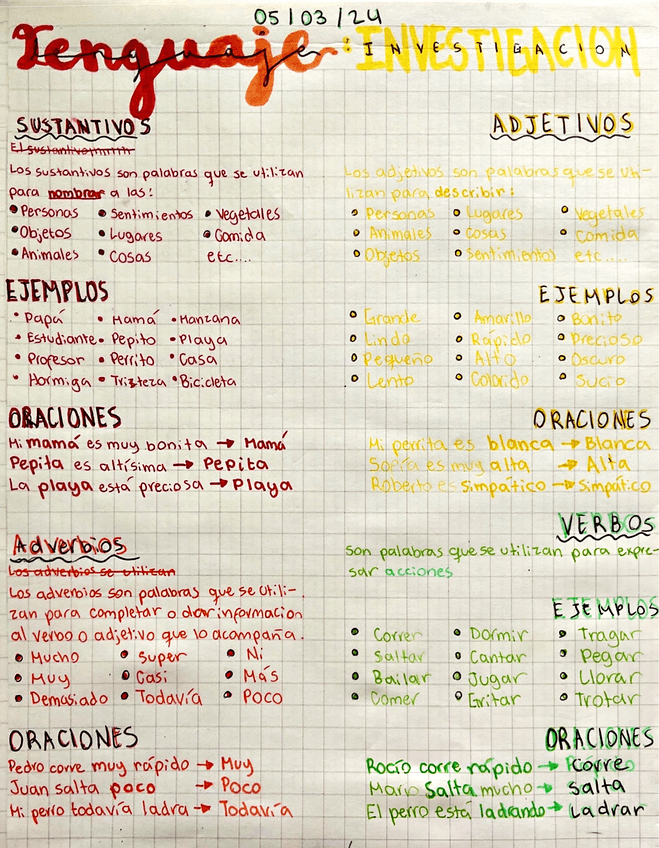 05/03/24
Lenguaje: INVESTIGACION
SUSTANTIVOS
Los sustantivos son palabras que se utilizan
para nombrar a las:
• Personas • Sentimientos • Vegetales
• Objetos • Lugares • Comida
• Animales • Cosas etc....
EJEMPLOS
• Papá • Mamá • Manzana
• Estudiante • Pepito • Playa
• Profesor • Perrito • Casa
• Hormiga • Trizteza • Bicicleta
ORACIONES
Mi mamá es muy bonita → Mamá
Pepita es altísima → Pepita
La playa está preciosa → Playa
Adverbios
Los adverbios se utilizan
Los adverbios son palabras que se utili-
zan para completar o dar informacion
al verbo o adjetivo que lo acompaña.
• Mucho • Super • Ni
• Muy • Casi • Más
• Demasiado • Todavía • Poco
ORACIONES
Pedro corre muy rápido → Muy
Juan salta poco → Poco
Mi perro todavía ladra → Todavía
ADJETIVOS
Los adjetivos son palabras que se uti-
lizan para describir:
• Personas • Lugares • Vegetales
• Animales • Cosas • Comida
• Objetos • Sentimientos etc....
EJEMPLOS
• Grande • Amarillo • Bonito
• Lindo • Rápido • Precioso
• Pequeño • Alto • Oscuro
• Lento • Colorido • Sucio
ORACIONES
Mi perrita es blanca → Blanca
Sofía es muy alta → Alta
Roberto es simpático → Simpático
VERBOS
Son palabras que se utilizan para expre-
sar acciones
EJEMPLOS
• Correr • Dormir • Tragar
• Saltar • Cantar • Pegar
• Bailar • Jugar • Llorar
• Comer • Gritar • Trotar
ORACIONES
Rocío corre rápido → corre
Mario Salta mucho → salta
El perro está ladrando → Ladrar